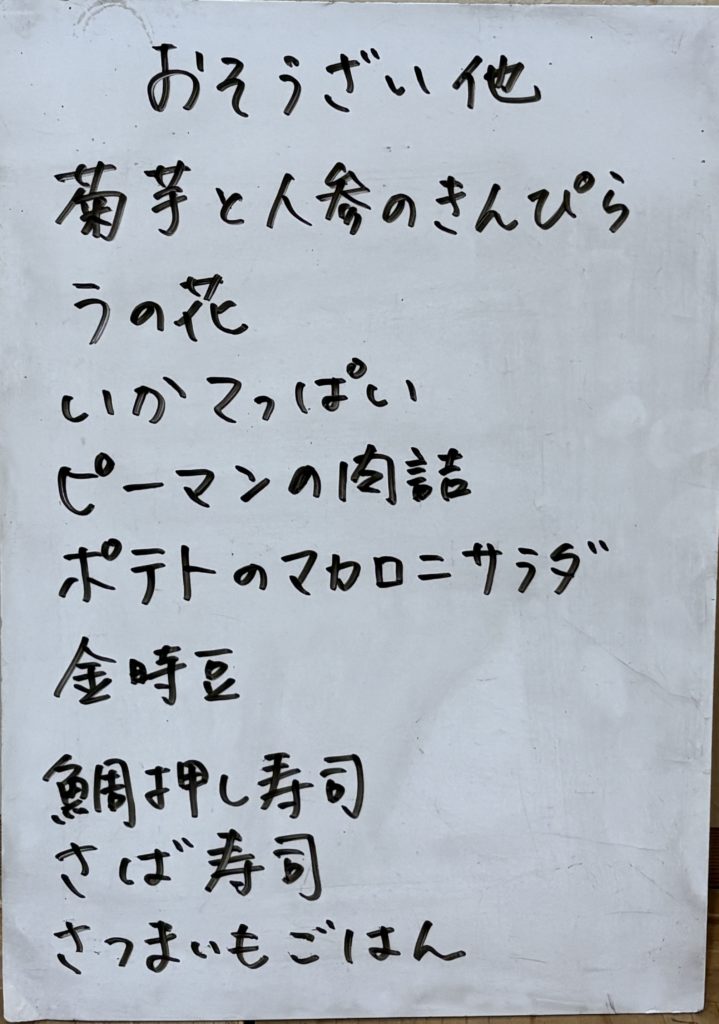 おそうざい他
菊芋と人参のきんぴら
うの花
いかてっぱい
ピーマンの肉詰
ポテトのマカロニサラダ
金時豆
鯛押し寿司
さば寿司
さつまいもごはん